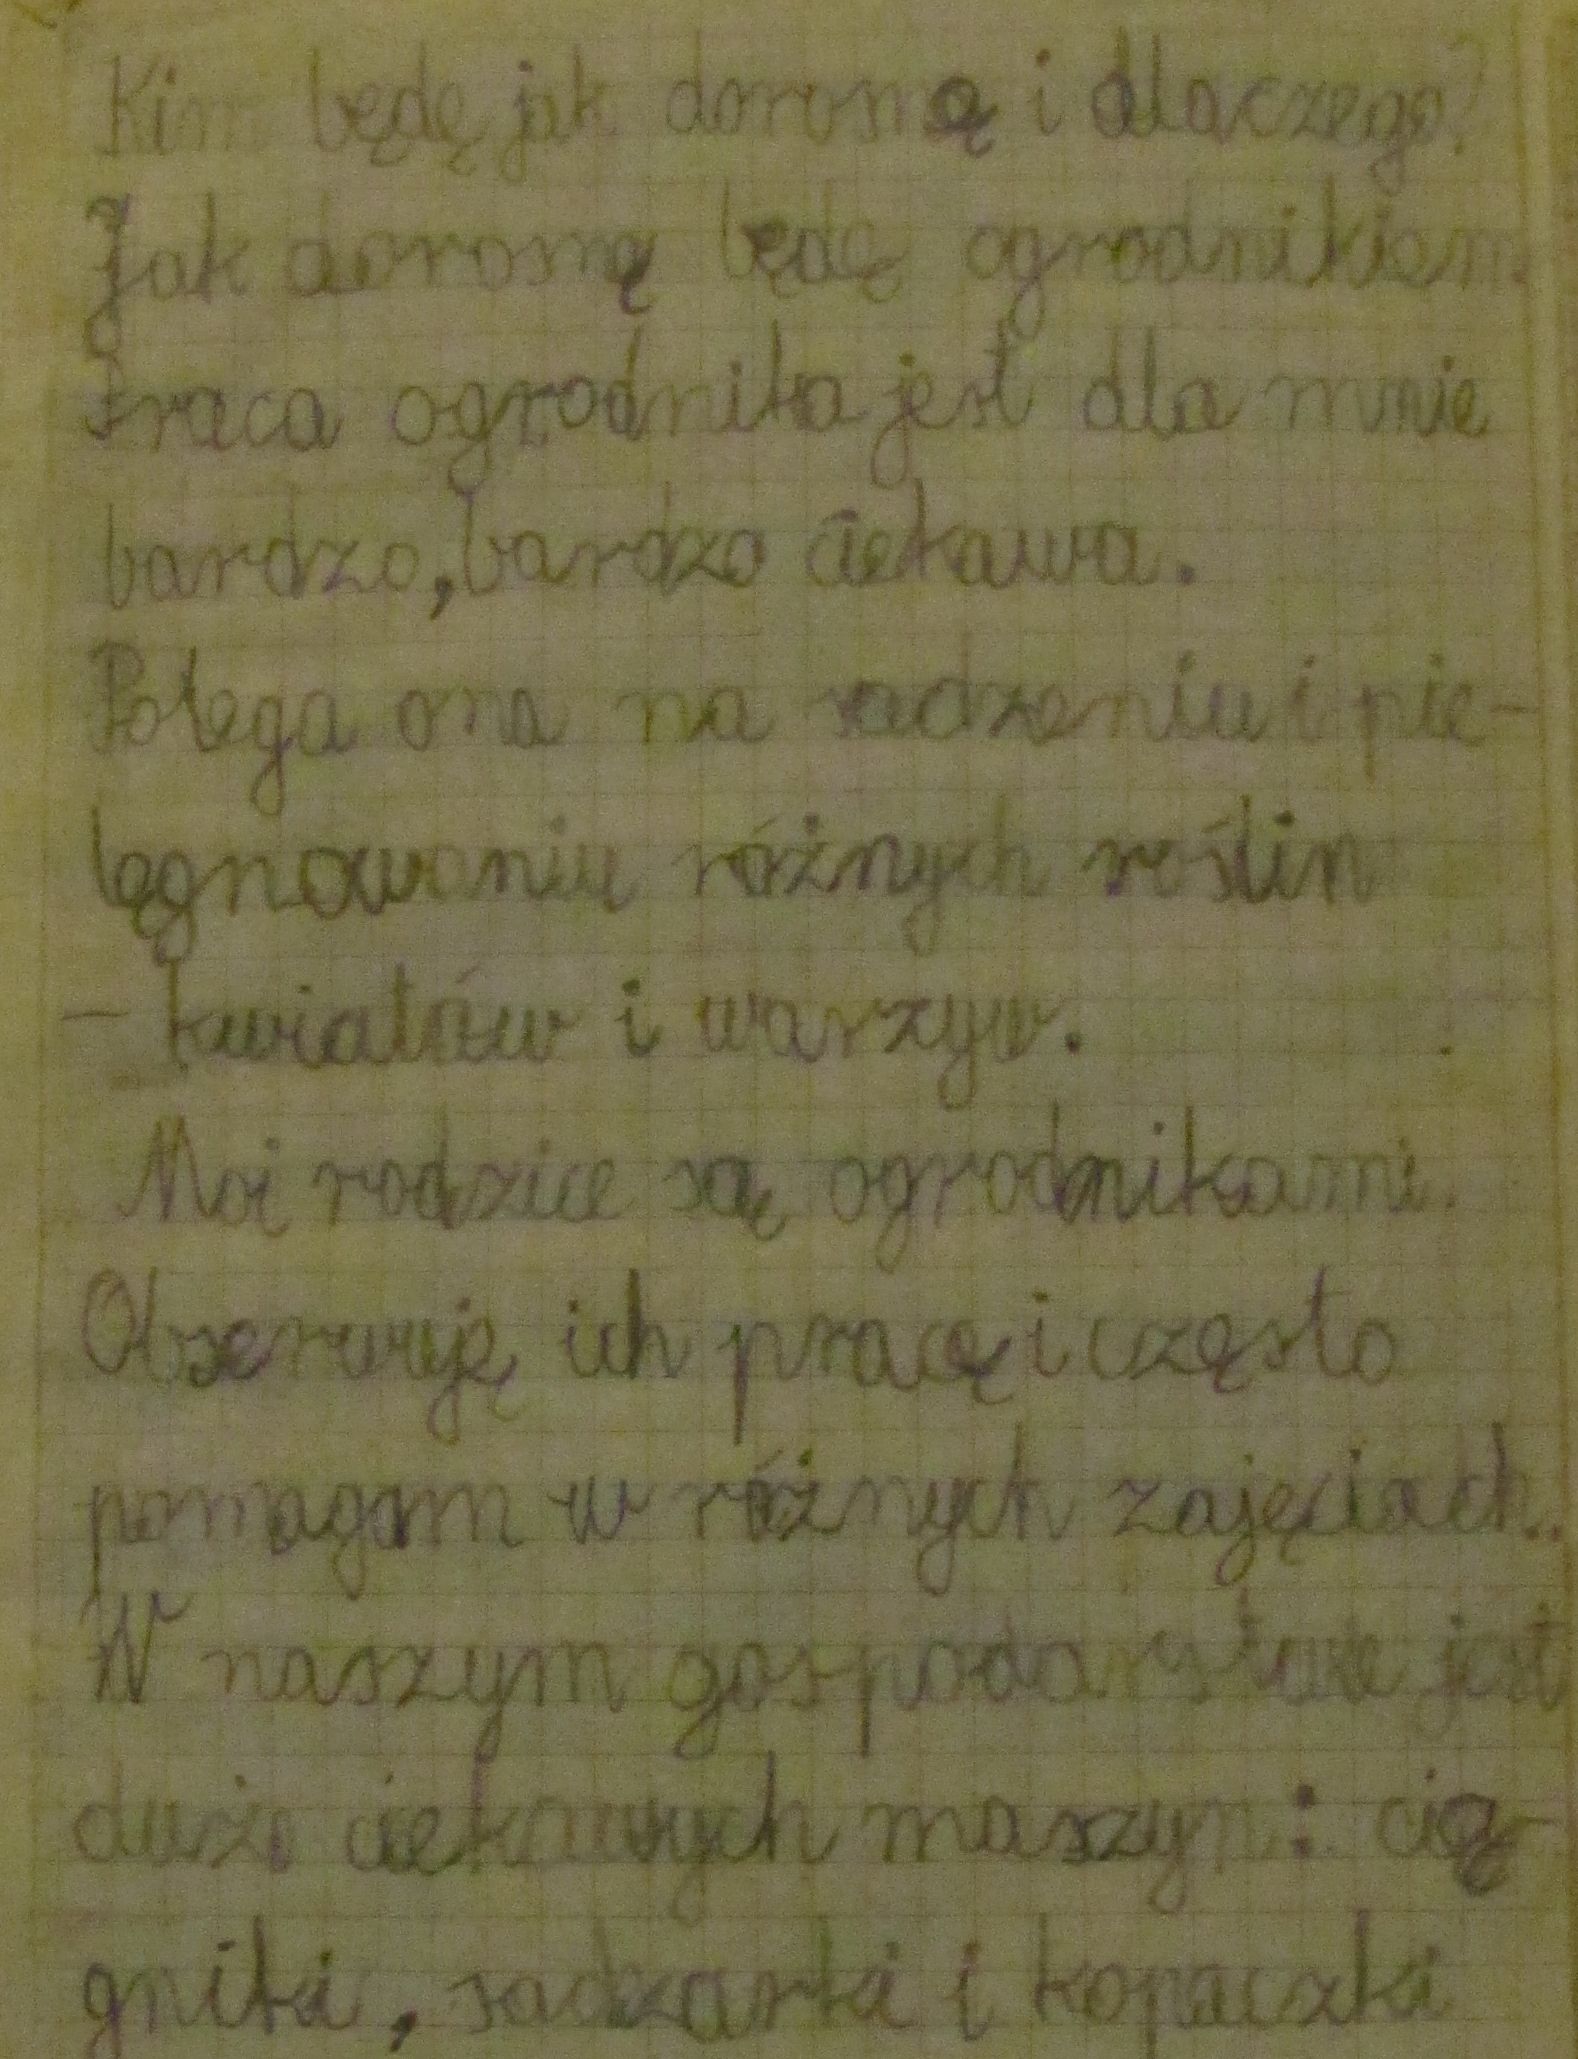 Kim będę jak dorosnę i dlaczego?
Jak dorosnę będę ogrodnikiem.
Praca ogrodnika jest dla mnie
bardzo, bardzo ciekawa.
Polega ona na sadzeniu i pie-
lęgnowaniu różnych roślin
- kwiatów i warzyw.
Moi rodzice są ogrodnikami.
Obserwuję ich pracę i często
pomagam w różnych zajęciach..
W naszym gospodarstwie jest
dużo ciekawych maszyn: cią-
gniki, sadzarki i kopaczki